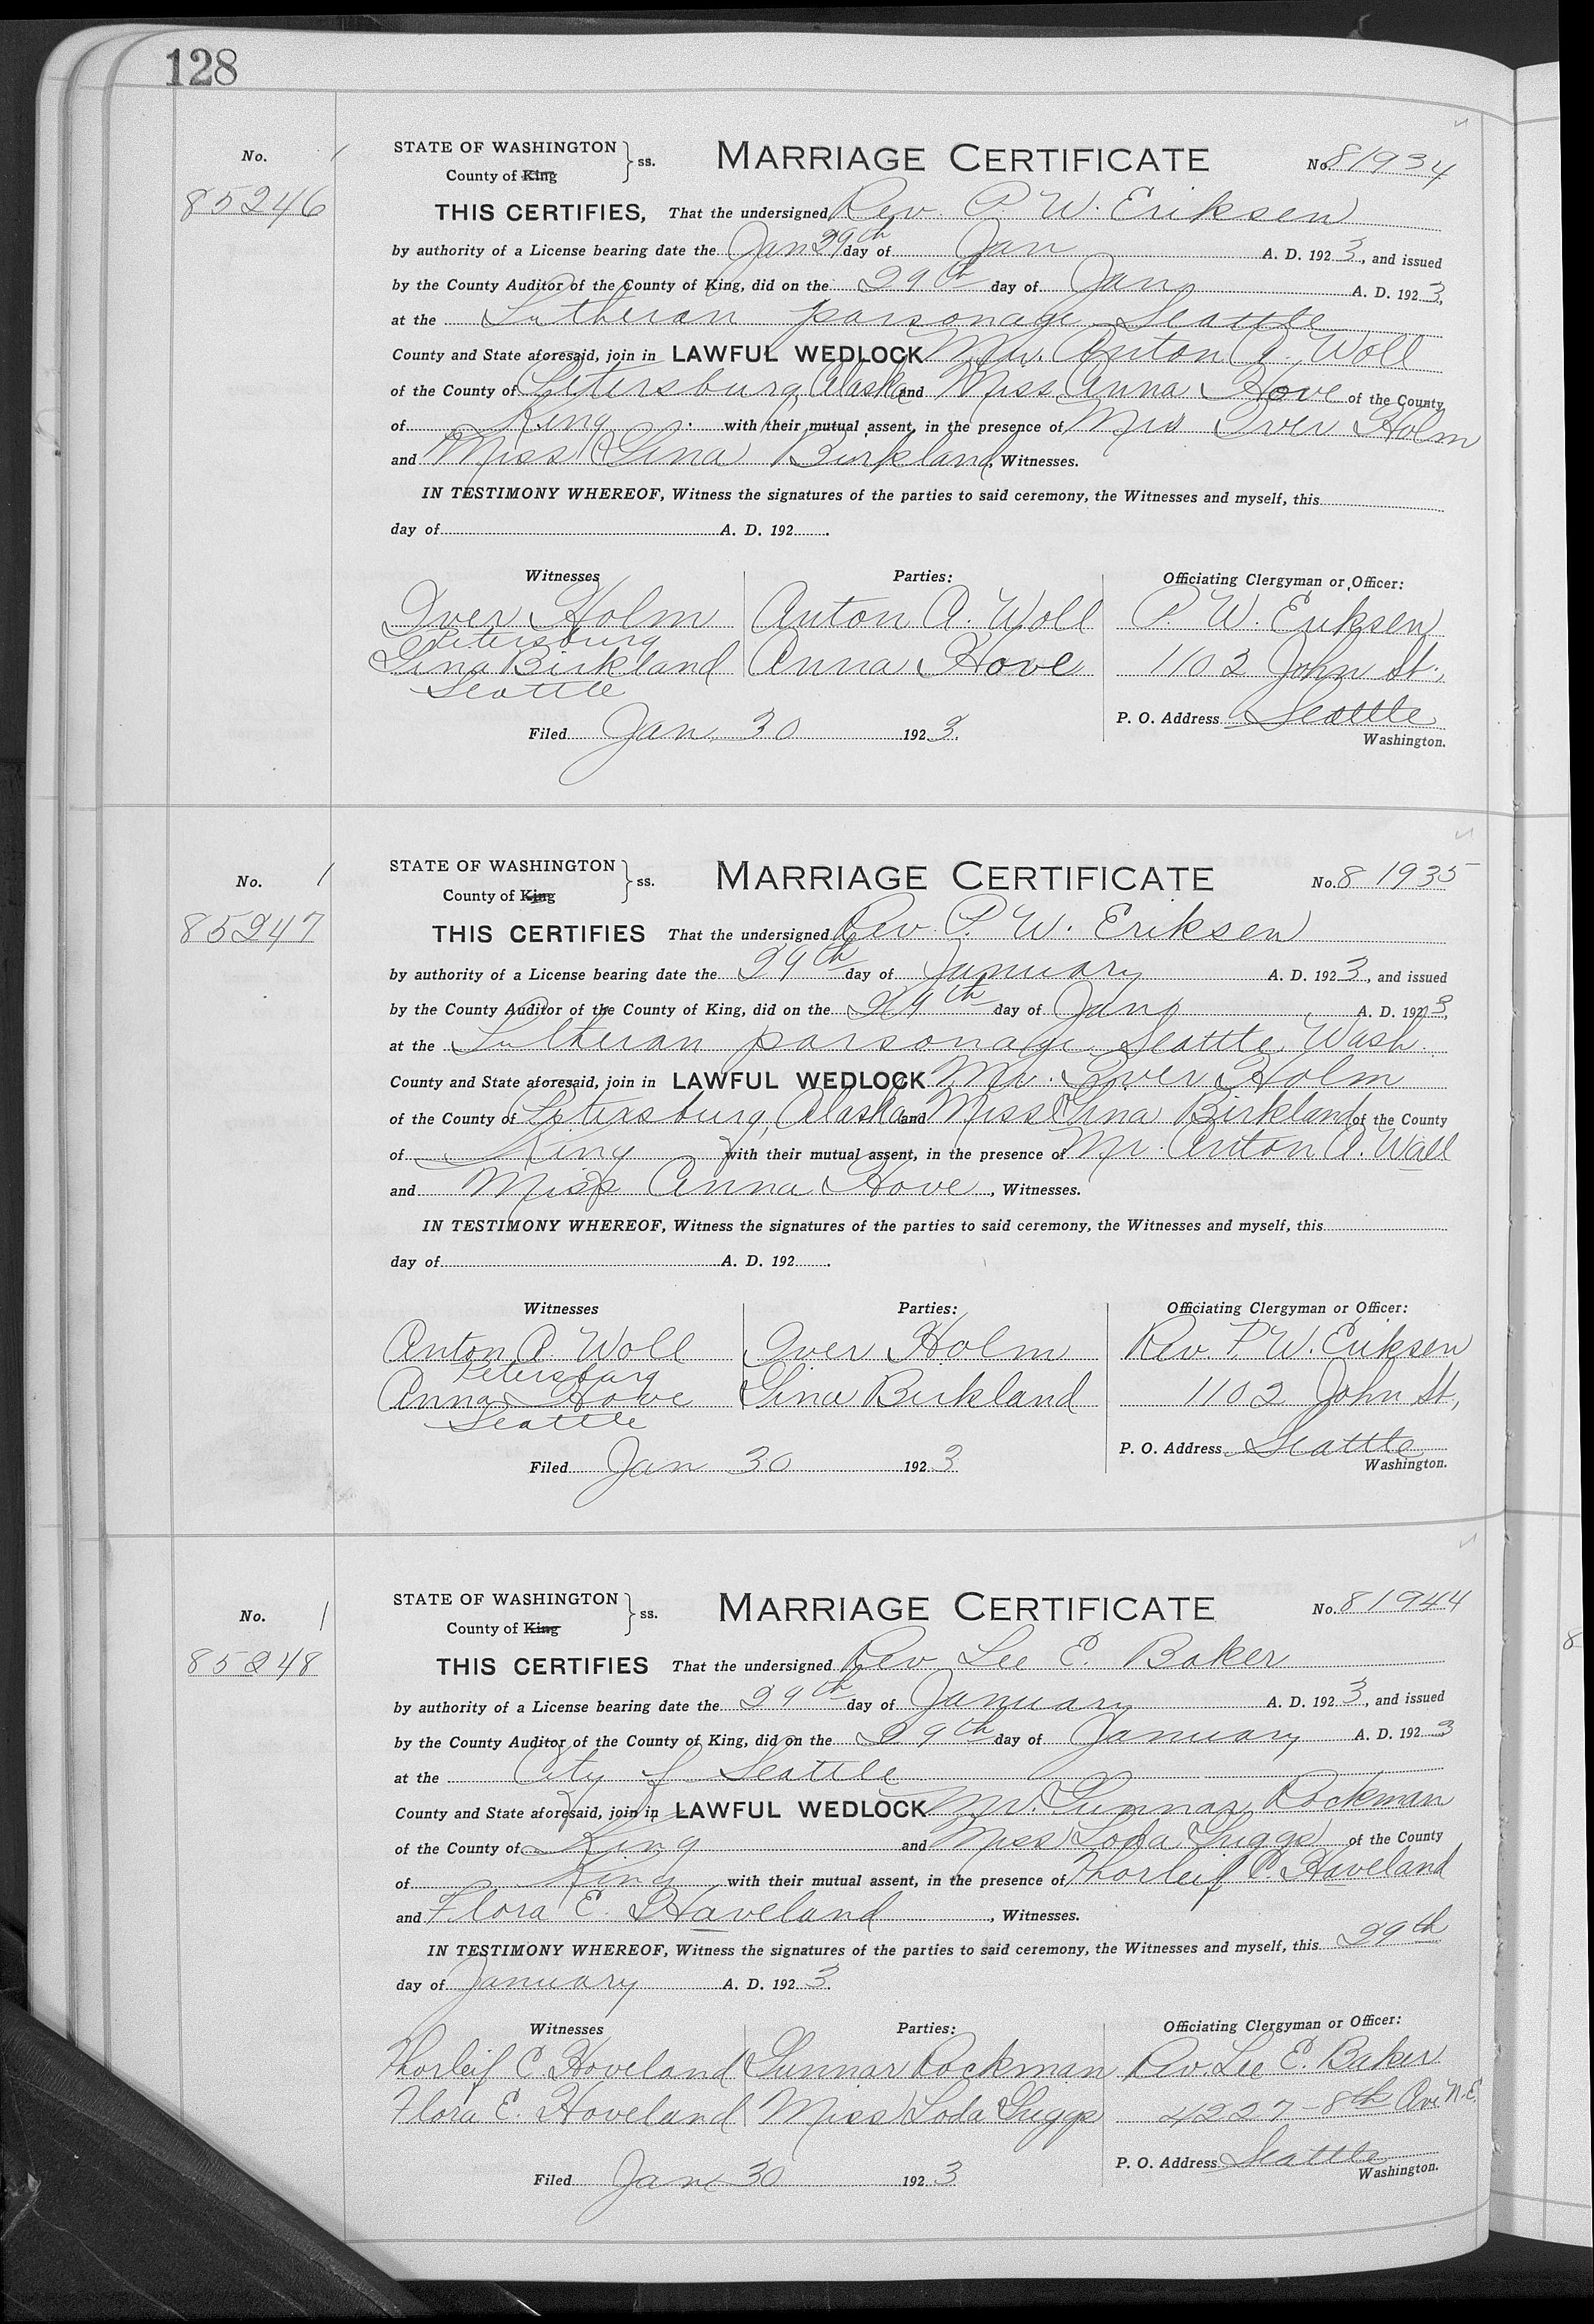 128
No. 85246
STATE OF WASHINGTON } ss. MARRIAGE CERTIFICATE No. 81934
County of King
THIS CERTIFIES, That the undersigned Rev. P. W. Eriksen
by authority of a License bearing date the Jan 29th day of Jan A. D. 1923, and issued
by the County Auditor of the County of King, did on the 29th day of Jan A. D. 1923,
at the Lutheran parsonage Seattle
County and State aforesaid, join in LAWFUL WEDLOCK Mr. Anton A. Woll
of the County of Petersburg, Alaska and Miss Anna Hove of the County
of King with their mutual assent, in the presence of Mrs Iver Holm
and Miss Gina Birkland, Witnesses.
IN TESTIMONY WHEREOF, Witness the signatures of the parties to said ceremony, the Witnesses and myself, this
day of A. D. 192 .
Witnesses Parties: Officiating Clergyman or Officer:
Iver Holm Anton A. Woll P. W. Eriksen
Petersburg
Gina Birkland Anna Hove 1102 John St.,
Seattle
P. O. Address Seattle
Filed Jan. 30 1923. Washington.
No. 1 85247
STATE OF WASHINGTON } ss. MARRIAGE CERTIFICATE No. 81935
County of King
THIS CERTIFIES That the undersigned Rev. P. W. Eriksen
by authority of a License bearing date the 29th day of January A. D. 1923, and issued
by the County Auditor of the County of King, did on the 29th day of Jan A. D. 1923,
at the Lutheran parsonage Seattle, Wash.
County and State aforesaid, join in LAWFUL WEDLOCK Mr. Iver Holm
of the County of Petersburg, Alaska and Miss Gina Birkland of the County
of King with their mutual assent, in the presence of Mr. Anton A. Wall
and Miss Anna Hove, Witnesses.
IN TESTIMONY WHEREOF, Witness the signatures of the parties to said ceremony, the Witnesses and myself, this
day of A. D. 192 .
Witnesses Parties: Officiating Clergyman or Officer:
Anton A. Woll Iver Holm Rev. P. W. Eriksen
Petersburg
Anna Hove Gina Birkland 1102 John St,
Seattle
P. O. Address Seattle
Filed Jan 30 1923 Washington.
No. 1 85248
STATE OF WASHINGTON } ss. MARRIAGE CERTIFICATE No. 81944
County of King
THIS CERTIFIES That the undersigned Rev Lee E. Baker
by authority of a License bearing date the 29th day of January A. D. 1923, and issued
by the County Auditor of the County of King, did on the 29th day of January A. D. 1923
at the City of Seattle
County and State aforesaid, join in LAWFUL WEDLOCK Mr. Gunnar Rockman
of the County of King and Miss Loda Griggs of the County
of King with their mutual assent, in the presence of Thorleif C. Haveland
and Flora E. Haveland, Witnesses.
IN TESTIMONY WHEREOF, Witness the signatures of the parties to said ceremony, the Witnesses and myself, this 29th
day of January A. D. 1923.
Witnesses Parties: Officiating Clergyman or Officer:
Thorleif C. Hoveland Gunnar Rockman Rev. Lee E. Baker
Flora E. Hoveland Miss Loda Griggs 4227-8th Ave N.E.
P. O. Address Seattle
Filed Jan 30 1923 Washington.